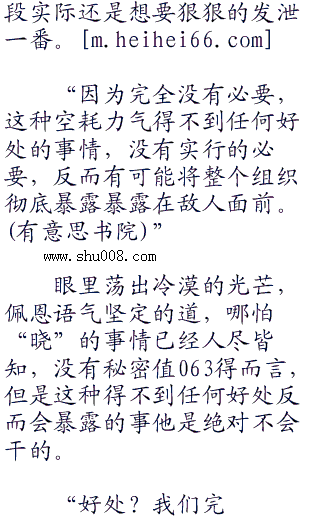 段实际还是想要狠狠的发泄
一番。[m.heihei66.com]
“因为完全没有必要，
这种空耗力气得不到任何好
处的事情，没有实行的必
要，反而有可能将整个组织
彻底暴露暴露在敌人面前。
(有意思书院)”
www.shu008.com
眼里荡出冷漠的光芒，
佩恩语气坚定的道，哪怕
“晓”的事情已经人尽皆
知，没有秘密值063得而言，
但是这种得不到任何好处反
而会暴露的事他是绝对不会
干的。
“好处？我们完